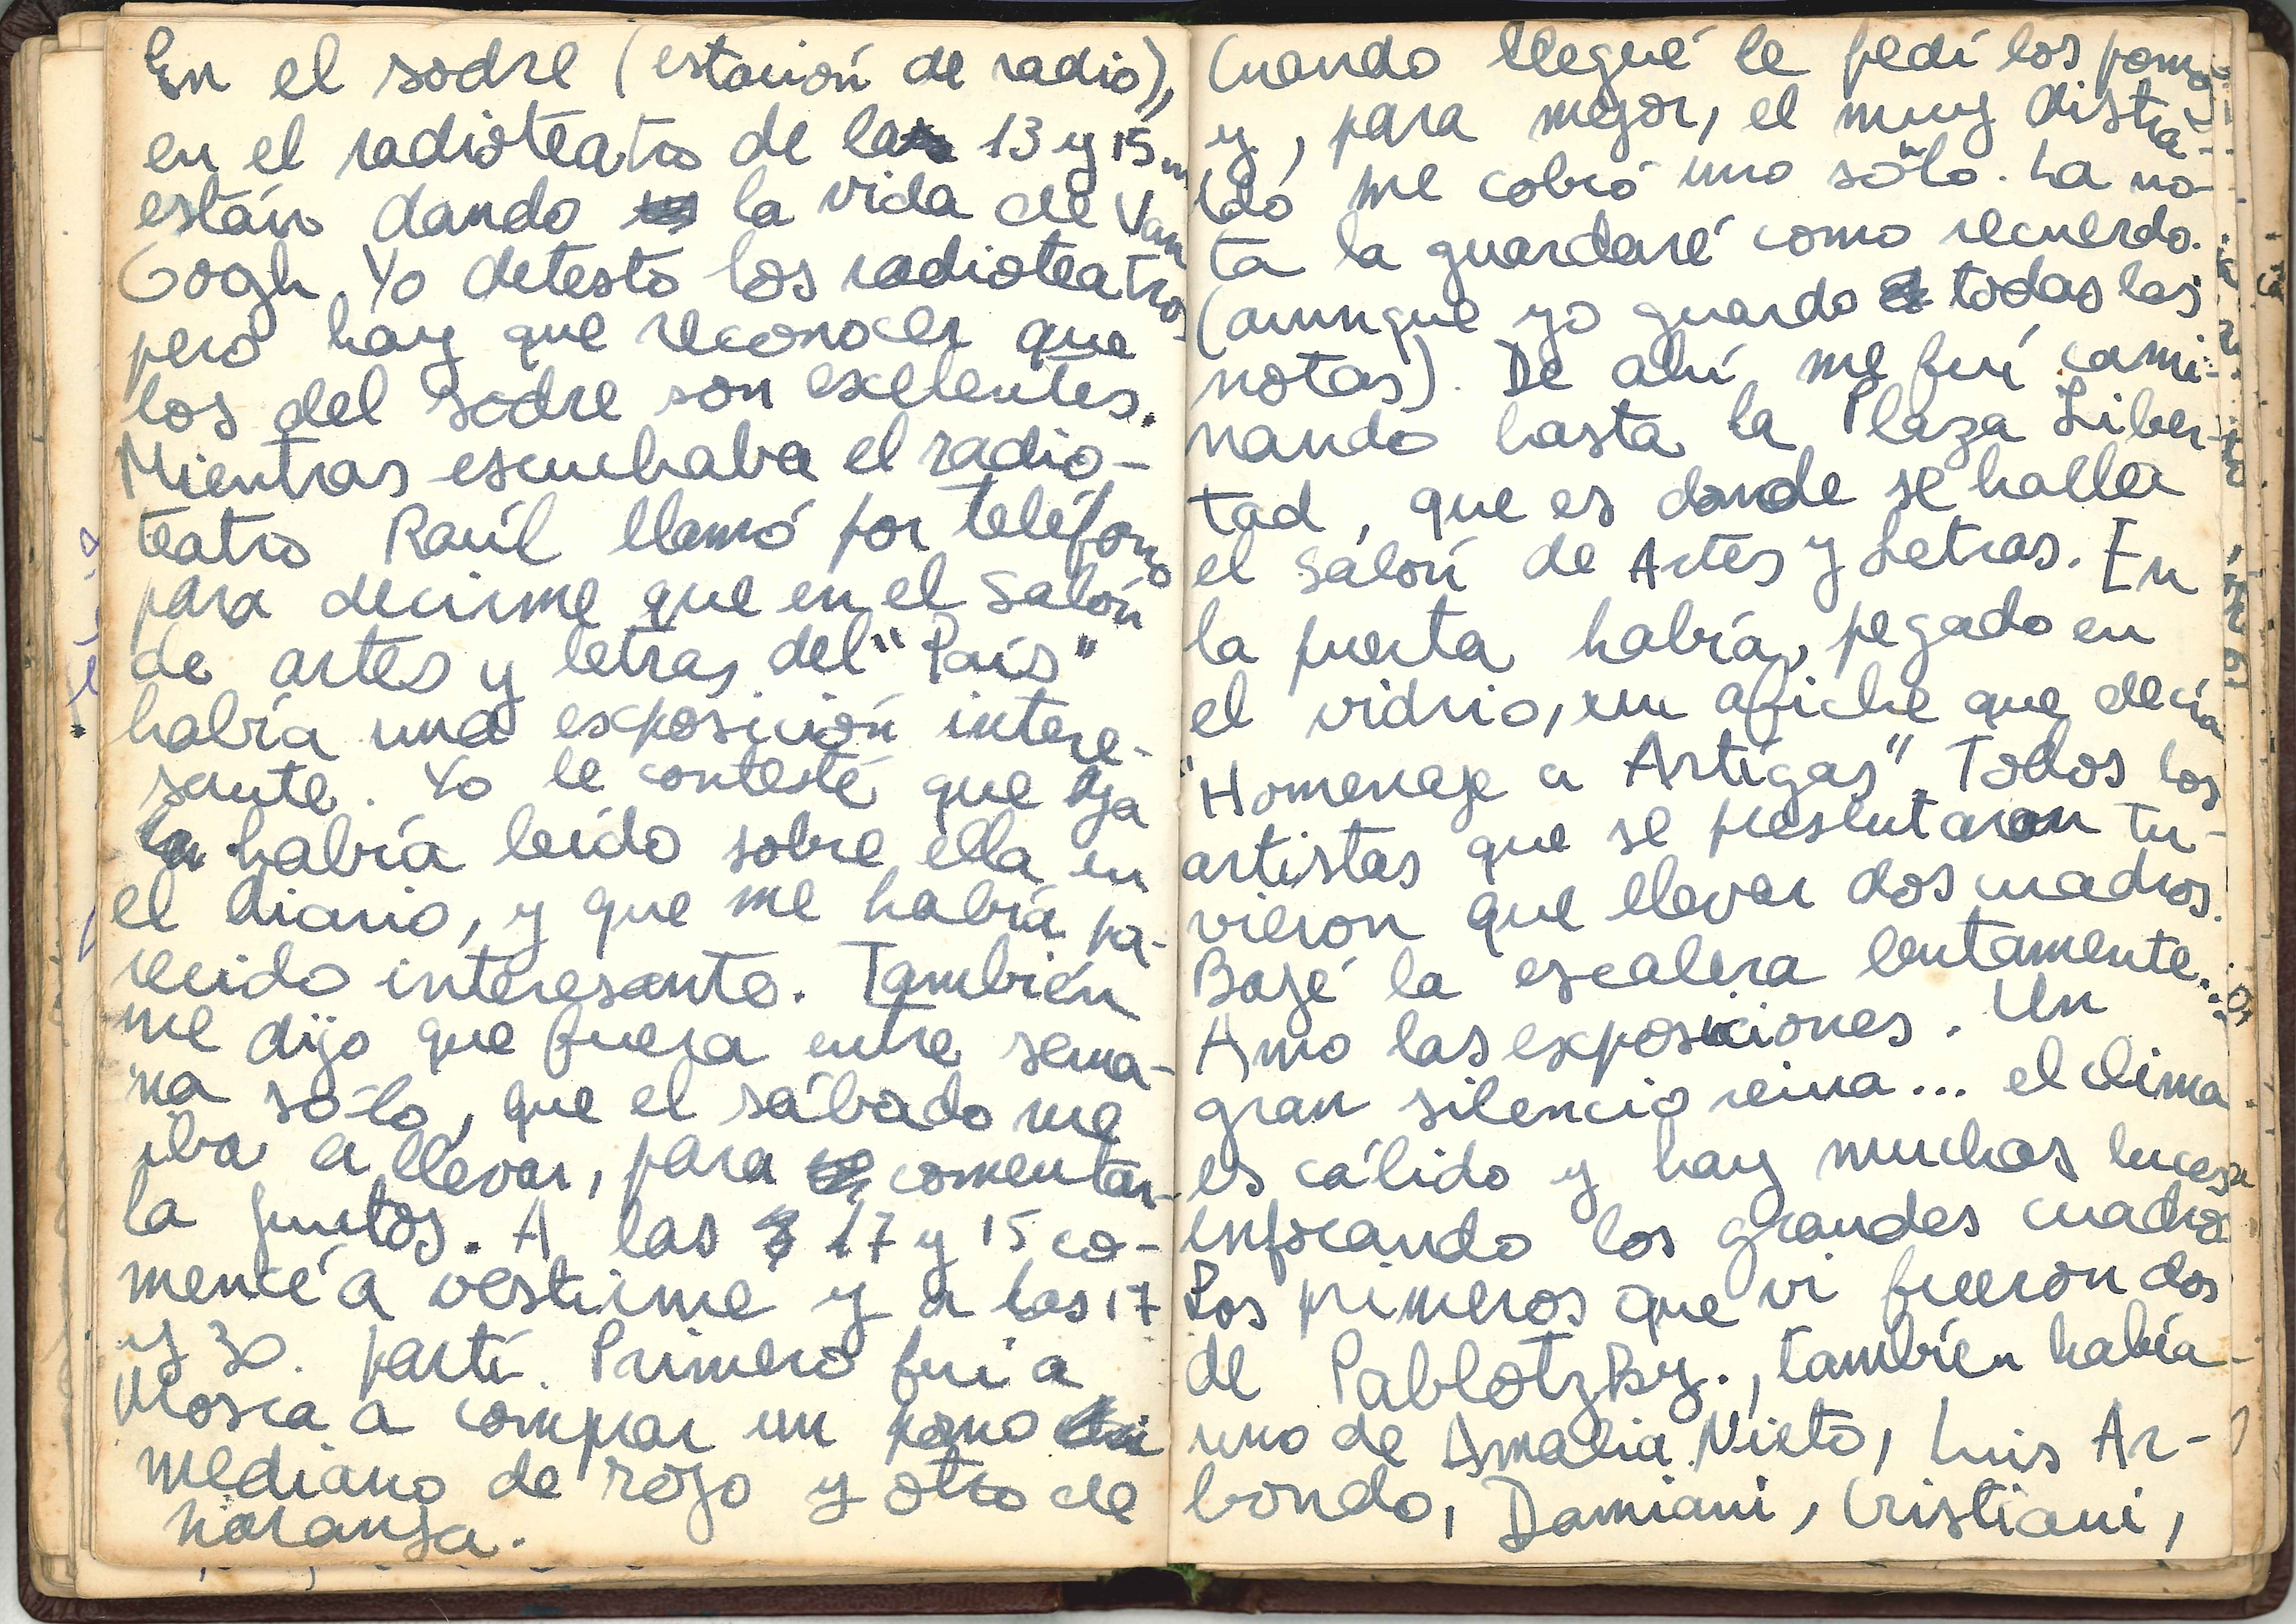 En el sodre (estación de radio),
en el radioteatro de las 13 y 15 m
están dando la vida de Van
Gogh. Yo detesto los radioteatros
pero hay que reconocer que
los del sodre son exelentes.
Mientras escuchaba el radio-
teatro Raúl llamó por teléfono
para decirme que en el Salón
de artes y letras del "País"
había una exposición intere-
sante. Yo le contesté que ya
había leído sobre ella en
el diario, y que me había pa-
recido interesante. También
me dijo que fuera entre sema-
na sólo, que el sábado me
iba a llevar, para comentar-
la juntos. A las 17 y 15 co-
mencé a vestirme y a las 17
y 30. partí. Primero fui a
Mosca a comprar un pomo
mediano de rojo y otro de
naranja.
Cuando llegué le pedí los pomos
y, para mejor, el muy distra-
ído me cobró uno sólo. La no-
ta la guardaré como recuerdo.
(aunque yo guardo todas las
notas). De ahí me fuí cami-
nando hasta la Plaza Liber-
tad, que es donde se halla
el salón de Artes y Letras. En
la puerta había, pegado en
el vidrio, un afiche que decía
"Homenaje a Artigas". Todos los
artistas que se presentaron tu-
vieron que llevar dos cuadros.
Bajé la escalera lentamente...
Amo las exposiciones. Un
gran silencio reina... el clima
es cálido y hay muchas luces
enfocando los grandes cuadros
Los primeros que vi fueron dos
de Pablotzky., también había
uno de Amalia Nieto, Luis Ar-
bondo, Damiani, Cristiani,